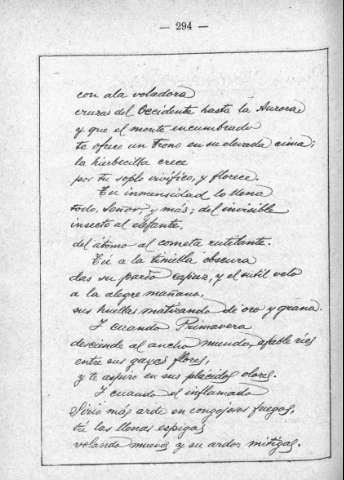 — 294 —
con ala voladora
cruzas del Occidente hasta la Aurora,
y que el monte encumbrado
te ofrece un Trono en su elevada cima;
la hierbecilla crece
por tu soplo vivífico, y florece.
Tu inmensidad lo llena
todo, Señor, y más; del invisible
insecto al elefante,
del átomo al cometa rutilante.
Tú a la tiniebla obscura
das su pardo capuz, y el sutil velo
a la alegre mañana,
sus huellas matizando de oro y grana.
Y cuando Primavera
desciende al ancho mundo, afable ríes
entre sus gayas flores,
y te aspiro en sus plácidos olores.
Y cuando el inflamado
Sirio más arde en congojosos fuegos,
tú las llenas espigas
volando mueves y su ardor mitigas.